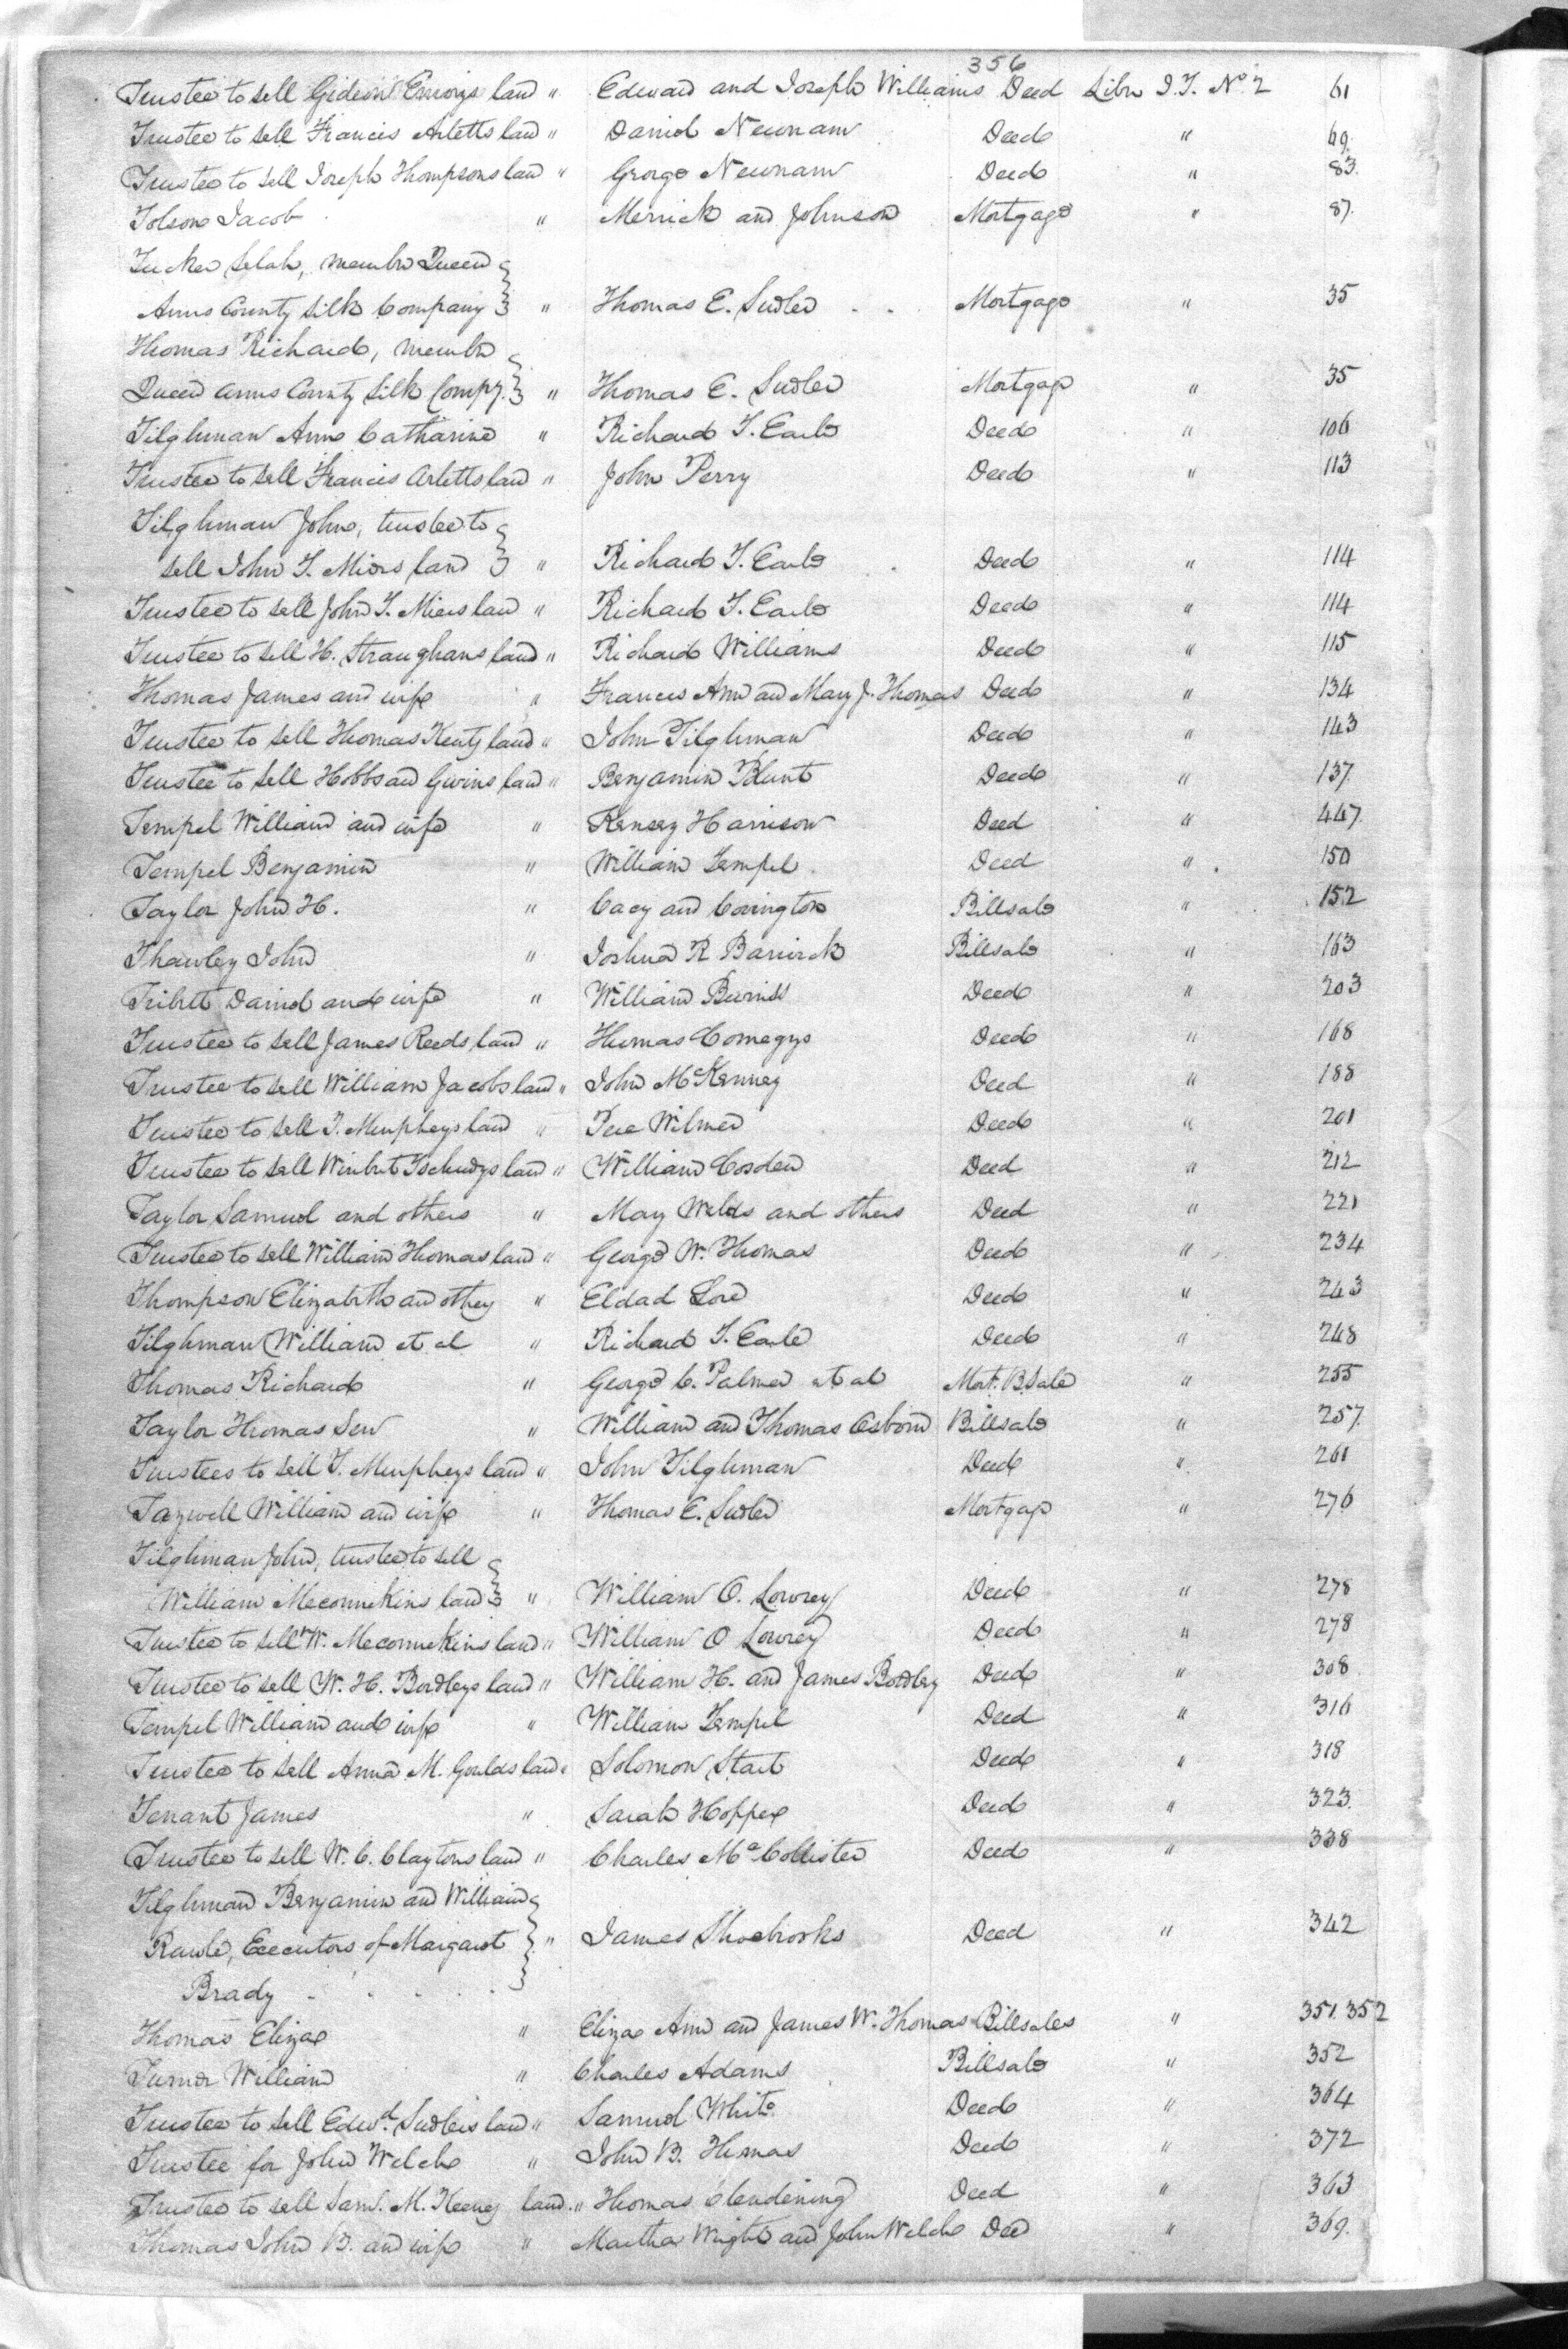 356
Trustee to sell Gideon Emorys land " Edward and Joseph Williams Deed Libr I.T. No. 2 61
Trustee to sell Francis Arletts land " Daniel Newnam Deed " 69.
Trustee to sell Joseph Thompsons land " George Newnam Deed " 83.
Tolson Jacob " Merrick and Johnson Mortgage " 87.
Tucker Selah, member Queen
Anns County Silk Company " Thomas E. Sudler Mortgage " 35
Thomas Richard, member
Queen Anns County Silk Compy. " Thomas E. Sudler Mortgage " 35
Tilghman Ann Catharine " Richard T. Earle Deed " 106
Trustee to sell Francis Arletts land " John Perry Deed " 113
Tilghman John, trustee to
sell John T. Miers land " Richard T. Earle Deed " 114
Trustee to sell John T. Miers land " Richard T. Earle Deed " 114
Trustee to sell H. Straughans land " Richard Williams Deed " 115
Thomas James and wife " Frances Ann and Mary J. Thomas Deed " 134
Trustee to sell Thomas Kents land " John Tilghman Deed " 143
Trustee to sell Hobbs and Givins land " Benjamin Blunt Deed " 137
Tempel William and wife " Kensey Harrison Deed " 447.
Tempel Benjamin " William Tempel Deed " 150
Taylor John H. " Cacy and Covington Billsale " 152
Thawley John " Joshua R Barwick Billsale " 163
Tribett Daniel and wife " William Burniss Deed " 203
Trustee to sell James Reeds land " Thomas Comegys Deed " 168
Trustee to sell William Jacobs land " John McKenney Deed " 188
Trustee to sell T. Murpheys land " Pere Wilmer Deed " 201
Trustee to sell Winbert Tschudys land " William Cosden Deed " 212
Taylor Samuel and others " Mary Welds and others Deed " 221
Trustee to sell William Thomas land " George W. Thomas Deed " 234
Thompson Elizabeth and others " Eldad Lore Deed " 243
Tilghman William et al " Richard T. Earle Deed " 248
Thomas Richard " George C. Palmer et al Mort. B. Sale " 255
Taylor Thomas Sen " William and Thomas Osborn Billsale " 257.
Trustees to sell T. Murpheys land " John Tilghman Deed " 261
Tazwell William and wife " Thomas E. Sudler Mortgage " 276
Tilghman John, trustee to sell
William Meconnekins land " William O. Lowrey Deed " 278
Trustee to sell W. Meconnekins land " William O Lowrey Deed " 278
Trustee to sell W. H. Bordleys land " William H. and James Bordley Deed " 308
Tempel William and wife " William Tempel Deed " 316
Trustee to sell Anna M. Goulds land " Solomon Start Deed " 318
Tenant James " Sarah Hopper Deed " 323.
Trustee to sell W. C. Claytons land " Charles McCollister Deed " 338
Tilghman Benjamin and William
Rawle, Executors of Margaret " James Shoebrooks Deed " 342
Brady
Thomas Eliza " Eliza Ann and James W. Thomas Billsales " 351.352
Turner William " Charles Adams Billsale " 352
Trustee to sell Edwd. Sudlers land " Samuel White Deed " 364
Trustee for John Welch " John B. Thomas Deed " 372
Trustee to sell Saml. M. Keeneys land. " Thomas Clendening Deed " 363
Thomas John B. and wife " Martha Wright and John Welch Deed " 369.